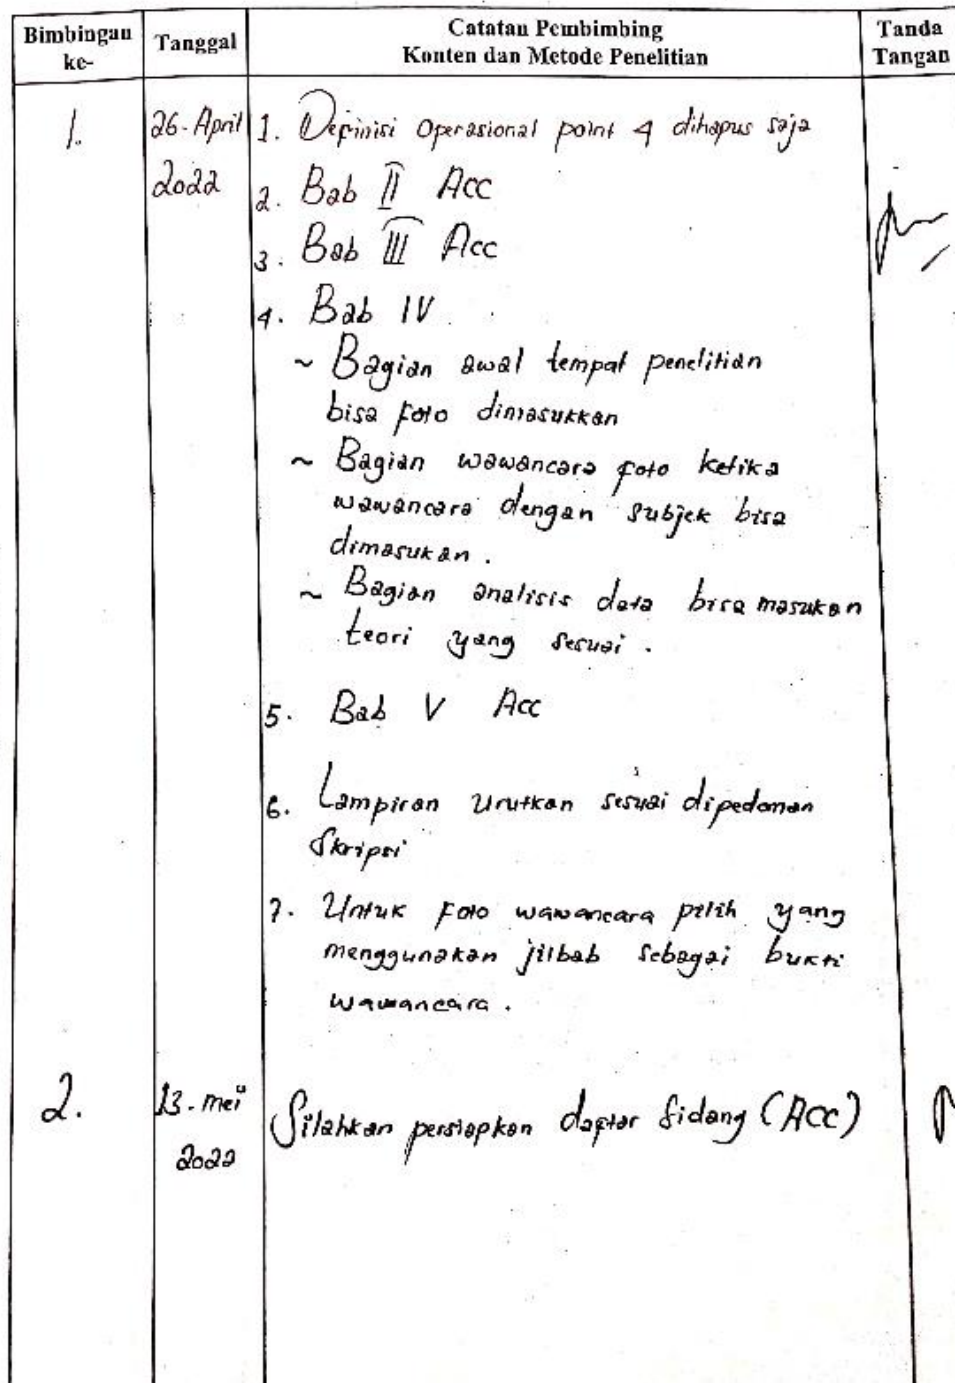 Bimbingan ke- Tanggal Catatan Pembimbing Konten dan Metode Penelitian Tanda Tangan
1. 26-April 2022
1. Definisi Operasional point 4 dihapus saja
2. Bab II Acc
3. Bab III Acc
4. Bab IV
~ Bagian awal tempat penelitian
bisa foto dimasukkan
~ Bagian wawancara foto ketika
wawancara dengan subjek bisa
dimasukan.
~ Bagian analisis data bisa masukan
teori yang sesuai.
5. Bab V Acc
6. Lampiran Urutkan sesuai dipedoman
Skripsi
7. Untuk Foto wawancara pilih yang
menggunakan jilbab sebagai bukti
wawancara.
2. 13-mei 2022 Silahkan persiapkan daftar Sidang (ACC)